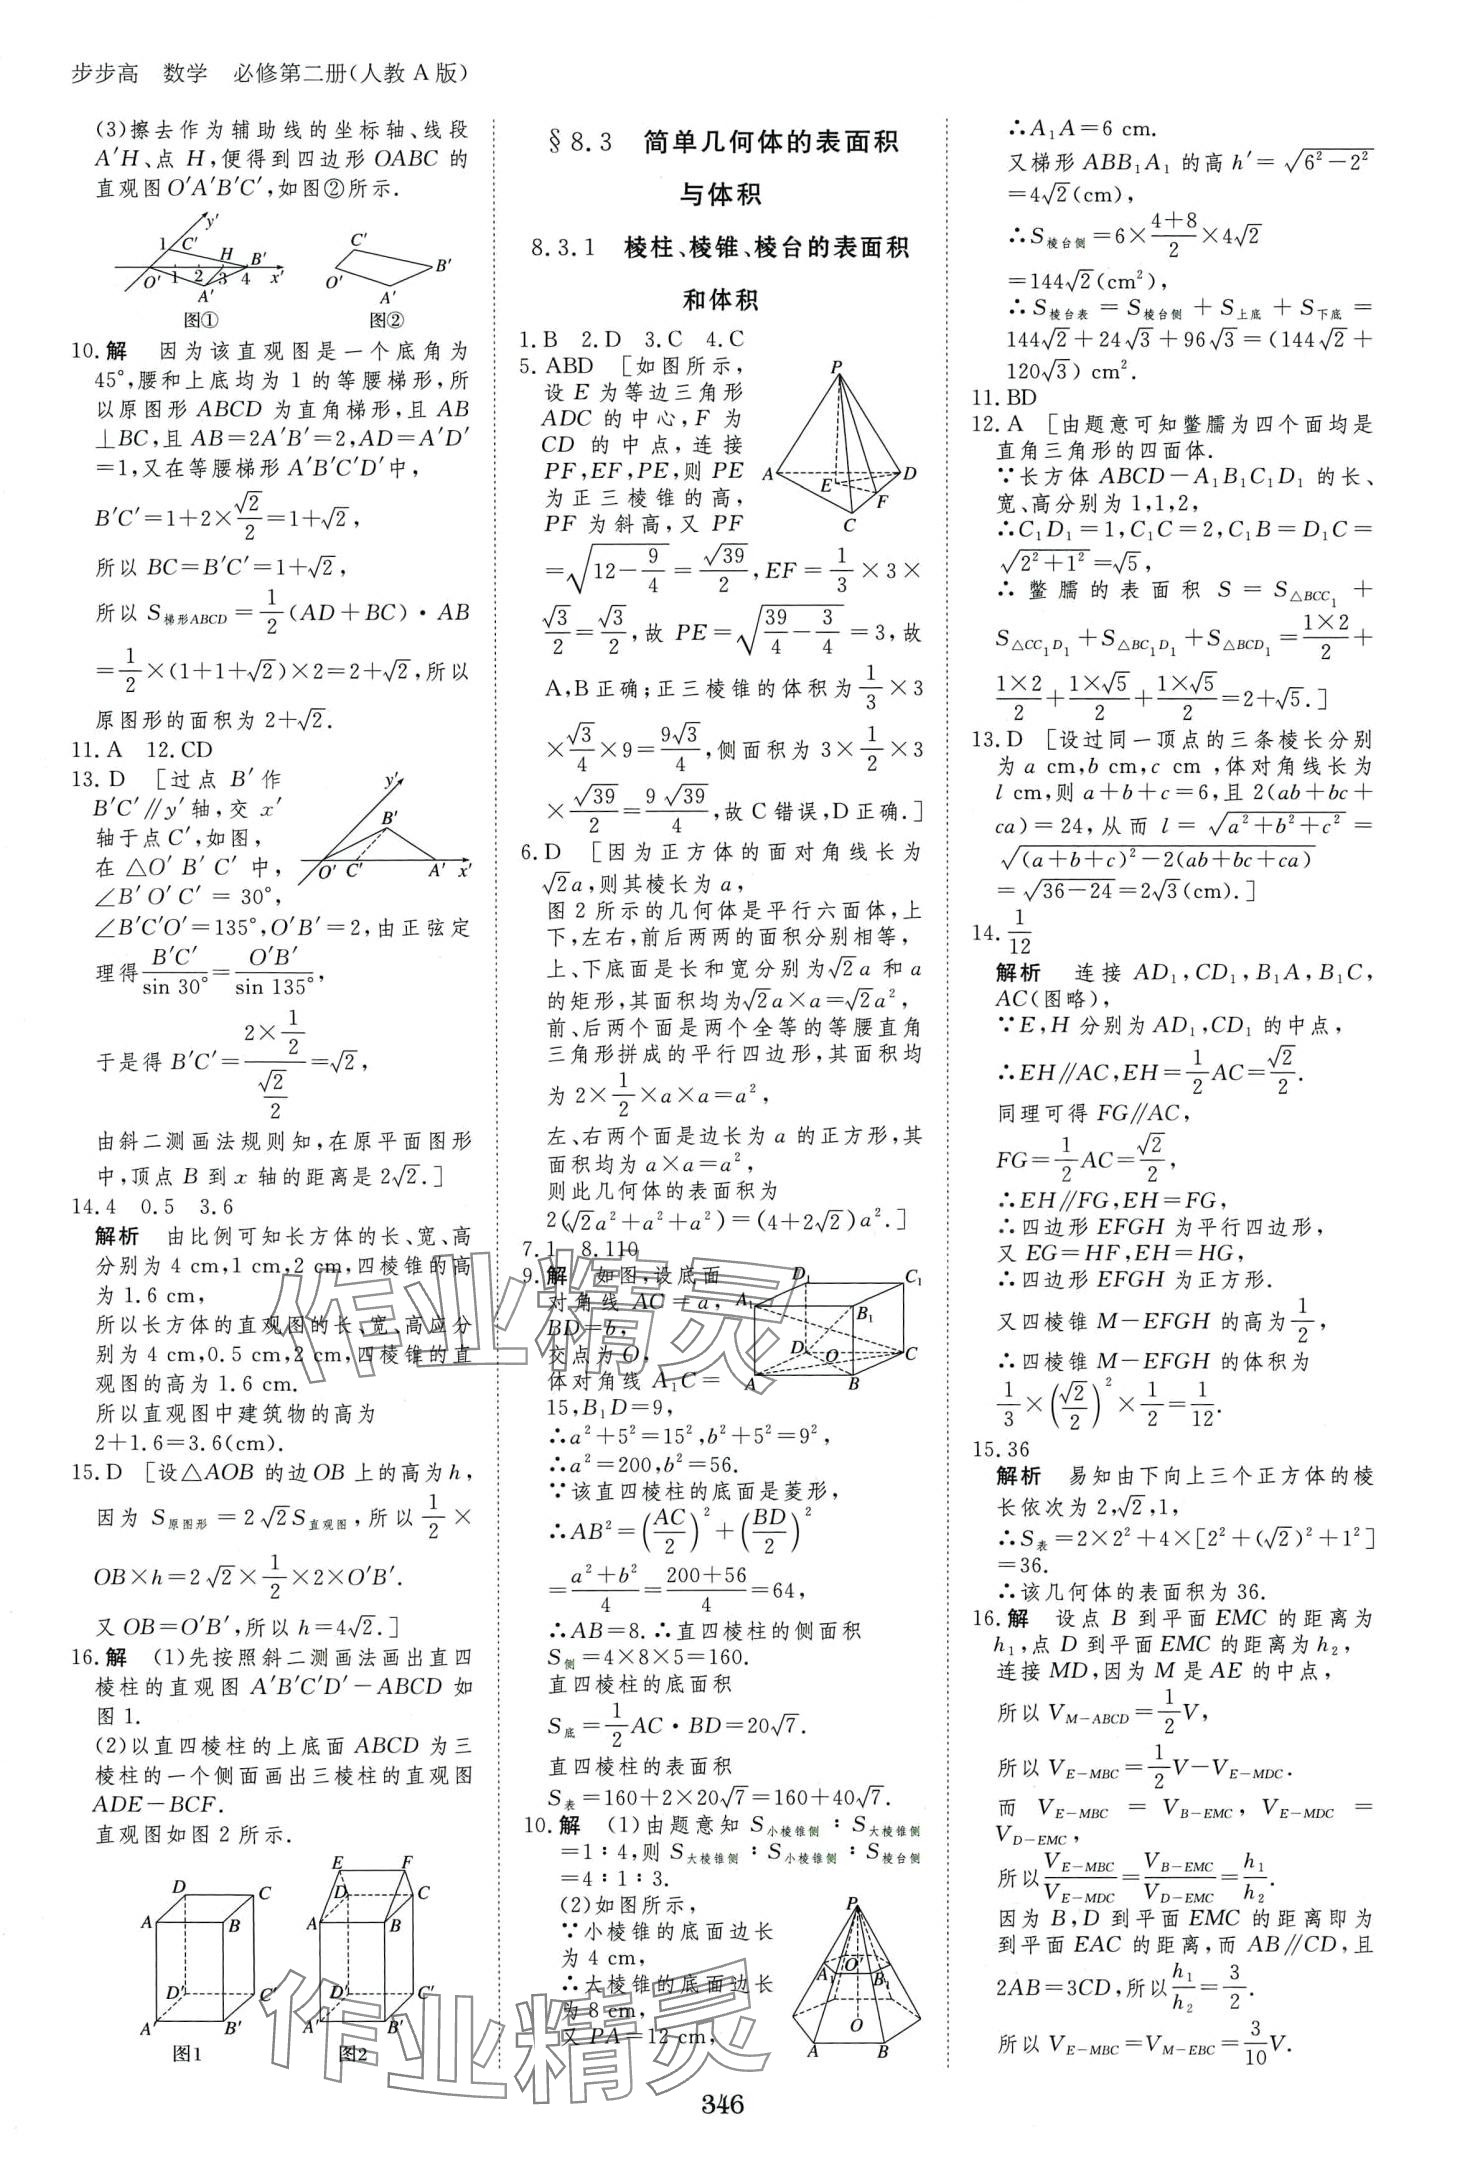 步步高　数学　必修第二册(人教A版)
(3)擦去作为辅助线的坐标轴、线段
A′H、点 H,便得到四边形 OABC 的
直观图 O′A′B′C′,如图②所示.
y′
1 C′ H B′
O′ 1 2 3 4 x′
A′
图①
C′ B′
O′ A′
图②
10.解　因为该直观图是一个底角为
45°,腰和上底均为 1 的等腰梯形,所
以原图形 ABCD 为直角梯形,且 AB
⊥BC,且 AB=2A′B′=2,AD=A′D′
=1,又在等腰梯形 A′B′C′D′中,
B′C′=1+2×√2/2=1+√2,
所以 BC=B′C′=1+√2,
所以 S梯形ABCD=1/2(AD+BC)·AB
=1/2×(1+1+√2)×2=2+√2,所以
原图形的面积为 2+√2.
11.A　12.CD
13.D　[过点 B′作
B′C′∥y′轴,交 x′
轴于点 C′,如图,
在△O′B′C′中,
∠B′O′C′=30°,
y′
B′
O′ C′ A′ x′
∠B′C′O′=135°,O′B′=2,由正弦定
理得 B′C′/sin 30°=O′B′/sin 135°,
于是得 B′C′=(2×1/2)/(√2/2)=√2,
由斜二测画法规则知,在原平面图形
中,顶点 B 到 x 轴的距离是 2√2.]
14.4　0.5　3.6
解析　由比例可知长方体的长、宽、高
分别为 4 cm,1 cm,2 cm,四棱锥的高
为 1.6 cm,
所以长方体的直观图的长、宽、高应分
别为 4 cm,0.5 cm,2 cm,四棱锥的直
观图的高为 1.6 cm.
所以直观图中建筑物的高为
2+1.6=3.6(cm).
15.D　[设△AOB 的边 OB 上的高为 h,
因为 S原图形=2√2S直观图,所以 1/2×
OB×h=2√2×1/2×2×O′B′.
又 OB=O′B′,所以 h=4√2.]
16.解　(1)先按照斜二测画法画出直四
棱柱的直观图 A′B′C′D′-ABCD 如
图 1.
(2)以直四棱柱的上底面 ABCD 为三
棱柱的一个侧面画出三棱柱的直观图
ADE-BCF.
直观图如图 2 所示.
D C
A B
D′ C′
A′ B′
图1
E F
D C
A B
D′ C′
A′ B′
图2
§8.3　简单几何体的表面积
与体积
8.3.1　棱柱、棱锥、棱台的表面积
和体积
1.B　2.D　3.C　4.C
5.ABD　[如图所示,
设 E 为等边三角形
ADC 的中心,F 为
CD 的中点,连接
PF,EF,PE,则 PE
为正三棱锥的高,
PF 为斜高,又 PF
P
A D
E F
C
=√(12-9/4)=√39/2,EF=1/3×3×
√3/2=√3/2,故 PE=√(39/4-3/4)=3,故
A,B 正确;正三棱锥的体积为 1/3×3
×√3/4×9=9√3/4,侧面积为 3×1/2×3
×√39/2=9√39/4,故 C 错误,D 正确.]
6.D　[因为正方体的面对角线长为
√2a,则其棱长为 a,
图 2 所示的几何体是平行六面体,上
下,左右,前后两两的面积分别相等,
上、下底面是长和宽分别为√2a 和 a
的矩形,其面积均为√2a×a=√2a²,
前、后两个面是两个全等的等腰直角
三角形拼成的平行四边形,其面积均
为 2×1/2×a×a=a²,
左、右两个面是边长为 a 的正方形,其
面积均为 a×a=a²,
则此几何体的表面积为
2(√2a²+a²+a²)=(4+2√2)a².]
7.1　8.110
9.解　如图,设底面
对角线 AC=a,
BD=b,
交点为 O,
体对角线 A₁C=
D₁ C₁
A₁ B₁
D O C
A B
15,B₁D=9,
∴a²+5²=15²,b²+5²=9²,
∴a²=200,b²=56.
∵该直四棱柱的底面是菱形,
∴AB²=(AC/2)²+(BD/2)²
=(a²+b²)/4=(200+56)/4=64,
∴AB=8.∴直四棱柱的侧面积
S侧=4×8×5=160.
直四棱柱的底面积
S底=1/2AC·BD=20√7.
直四棱柱的表面积
S表=160+2×20√7=160+40√7.
10.解　(1)由题意知 S小棱锥侧∶S大棱锥侧
=1∶4,则 S大棱锥侧∶S小棱锥侧∶S棱台侧
=4∶1∶3.
(2)如图所示,
∵小棱锥的底面边长
为 4 cm,
∴大棱锥的底面边长
为 8 cm,
又 PA=12 cm,
P
A₁ O′ B₁
O
A B
∴A₁A=6 cm.
又梯形 ABB₁A₁ 的高 h′=√(6²-2²)
=4√2(cm),
∴S棱台侧=6×(4+8)/2×4√2
=144√2(cm²),
∴S棱台表=S棱台侧+S上底+S下底=
144√2+24√3+96√3=(144√2+
120√3) cm².
11.BD
12.A　[由题意可知鳖臑为四个面均是
直角三角形的四面体.
∵长方体 ABCD-A₁B₁C₁D₁ 的长、
宽、高分别为 1,1,2,
∴C₁D₁=1,C₁C=2,C₁B=D₁C=
√(2²+1²)=√5,
∴鳖臑的表面积 S=S△BCC₁+
S△CC₁D₁+S△BC₁D₁+S△BCD₁=(1×2)/2+
(1×2)/2+(1×√5)/2+(1×√5)/2=2+√5.]
13.D　[设过同一顶点的三条棱长分别
为 a cm,b cm,c cm,体对角线长为
l cm,则 a+b+c=6,且 2(ab+bc+
ca)=24,从而 l=√(a²+b²+c²)=
√((a+b+c)²-2(ab+bc+ca))
=√(36-24)=2√3(cm).]
14.1/12
解析　连接 AD₁,CD₁,B₁A,B₁C,
AC(图略),
∵E,H 分别为 AD₁,CD₁ 的中点,
∴EH∥AC,EH=1/2AC=√2/2.
同理可得 FG∥AC,
FG=1/2AC=√2/2,
∴EH∥FG,EH=FG,
∴四边形 EFGH 为平行四边形,
又 EG=HF,EH=HG,
∴四边形 EFGH 为正方形.
又四棱锥 M-EFGH 的高为 1/2,
∴四棱锥 M-EFGH 的体积为
1/3×(√2/2)²×1/2=1/12.
15.36
解析　易知由下向上三个正方体的棱
长依次为 2,√2,1,
∴S表=2×2²+4×[2²+(√2)²+1²]
=36.
∴该几何体的表面积为 36.
16.解　设点 B 到平面 EMC 的距离为
h₁,点 D 到平面 EMC 的距离为 h₂,
连接 MD,因为 M 是 AE 的中点,
所以 V M-ABCD=1/2V,
所以 V E-MBC=1/2V-V E-MDC.
而 V E-MBC=V B-EMC,V E-MDC=
V D-EMC,
所以 V E-MBC/V E-MDC=V B-EMC/V D-EMC=h₁/h₂.
因为 B,D 到平面 EMC 的距离即为
到平面 EAC 的距离,而 AB∥CD,且
2AB=3CD,所以 h₁/h₂=3/2.
所以 V E-MBC=V M-EBC=3/10V.
346
作业精灵
作业精灵